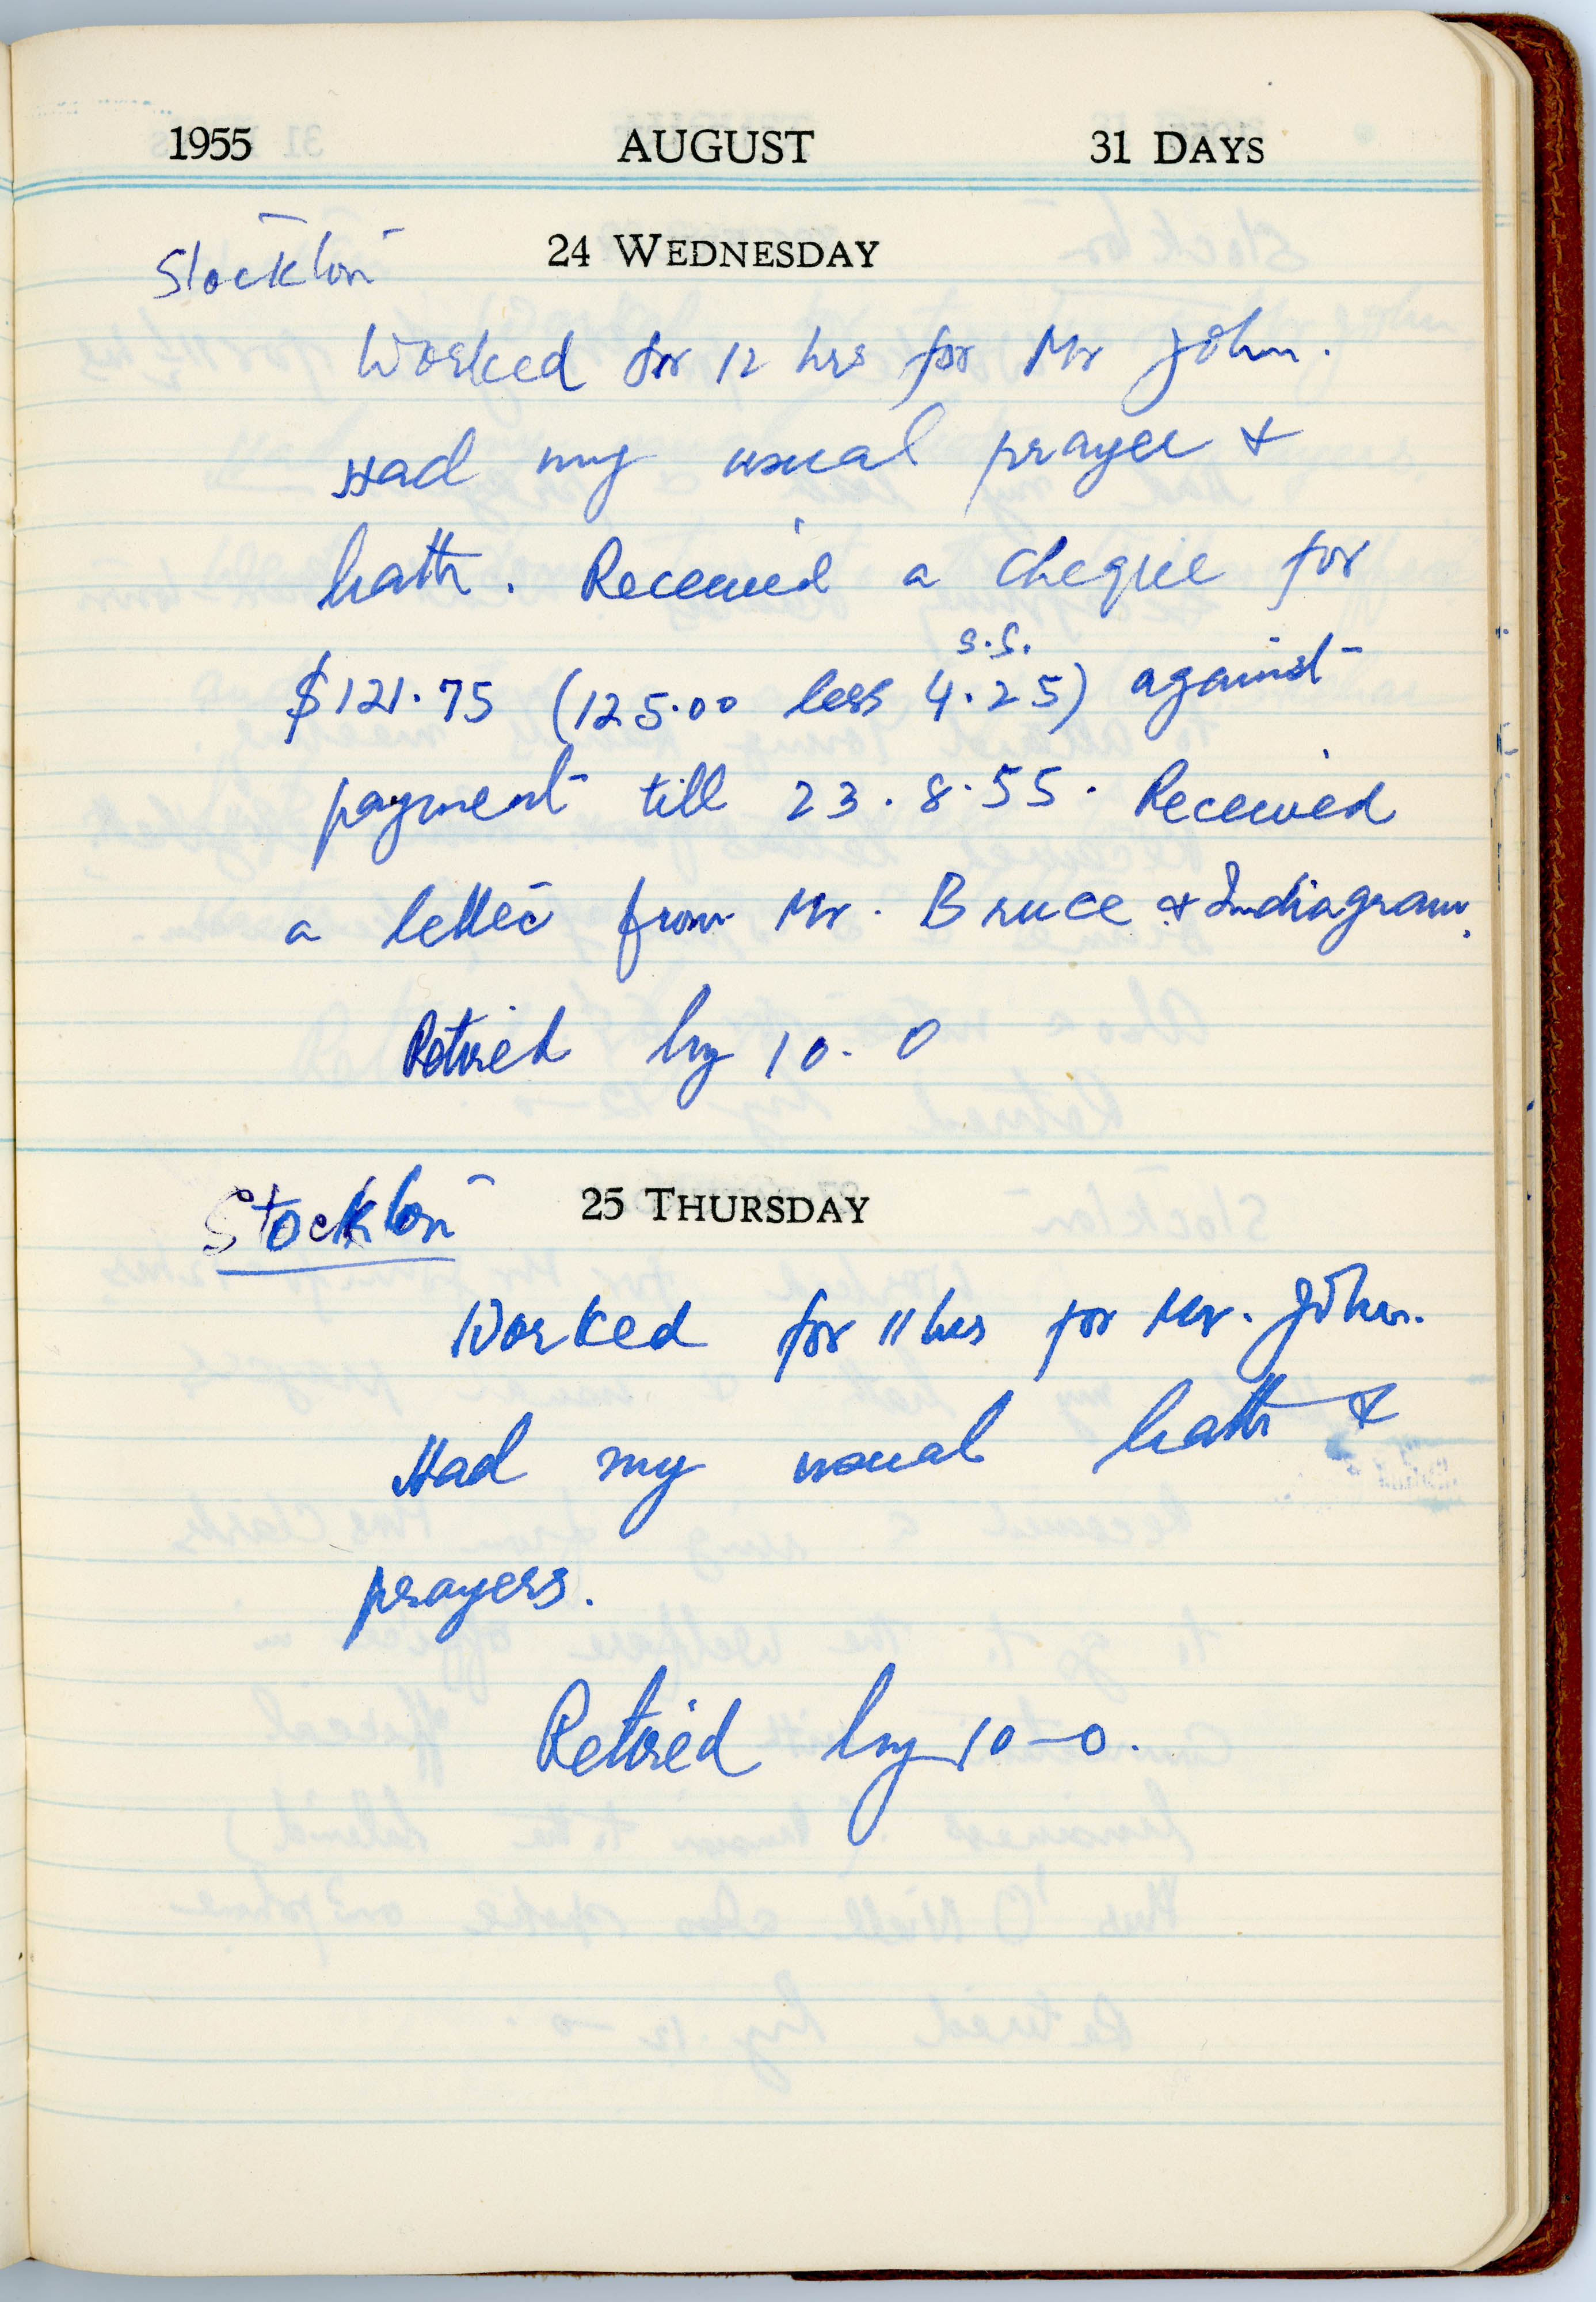 1955 AUGUST 31 DAYS
24 WEDNESDAY
Stockton
Worked for 12 hrs for Mr John.
Had my usual prayer &
bath. Received a cheque for
s.s.
$121.75 (125.00 less 4.25) against
payment till 23.8.55. Received
a letter from Mr. Bruce & Indiagram.
Retired by 10-0
25 THURSDAY
Stockton
Worked for 11 hrs for Mr. John.
Had my usual bath &
prayers.
Retired by 10-0.